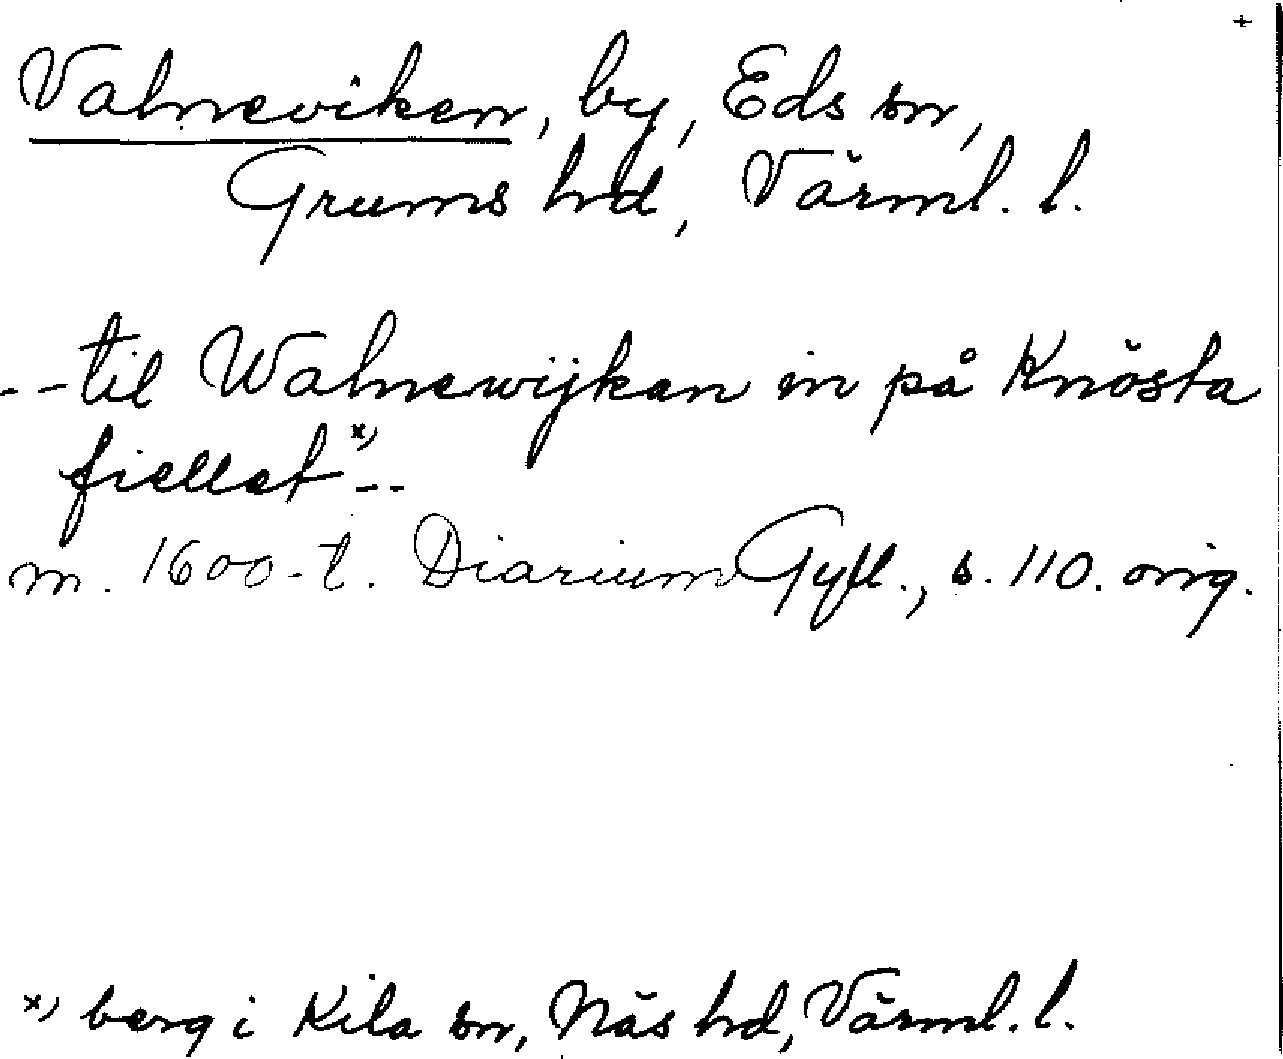 +
Valneviken, by, Eds sn,
Grums hd, Värml. l.
--til Walnewijken in på Knösta
fiellet x) --
m. 1600-t. Diarium Gyll., s. 110. orig.
x) berg i Kila sn, Näs hd, Värml. l.